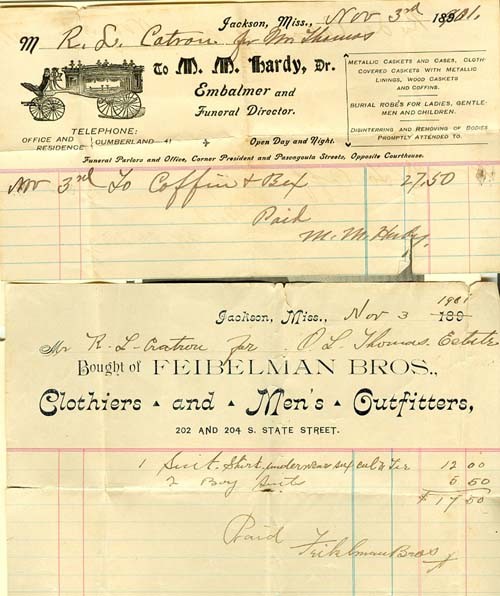 Jackson, Miss., Nov 3rd 189 1901.
M R. L. Catron for Mr Thomas
To M. M. Hardy, Dr.
Embalmer and
Funeral Director.
METALLIC CASKETS AND CASES, CLOTH-
COVERED CASKETS WITH METALLIC
LININGS, WOOD CASKETS
AND COFFINS.
BURIAL ROBES FOR LADIES, GENTLE-
MEN AND CHILDREN.
DISINTERRING AND REMOVING OF BODIES
PROMPTLY ATTENDED TO.
TELEPHONE:
OFFICE AND RESIDENCE } CUMBERLAND 41
Open Day and Night.
Funeral Parlors and Office, Corner President and Pascagoula Streets, Opposite Courthouse.
Nov 3rd To Coffin & Box 27.50
Paid
M. M. Hardy.
Jackson, Miss., Nov 3 1901 189
Mr R. L. Catron for O L Thomas Estate
Bought of FEIBELMAN BROS.,
Clothiers and Men's Outfitters,
202 AND 204 S. STATE STREET.
1 Suit. Shirt, underwear & Tie 12 00
2 Boy Suits 5 50
$ 17 50
Paid
Feibelman Bros